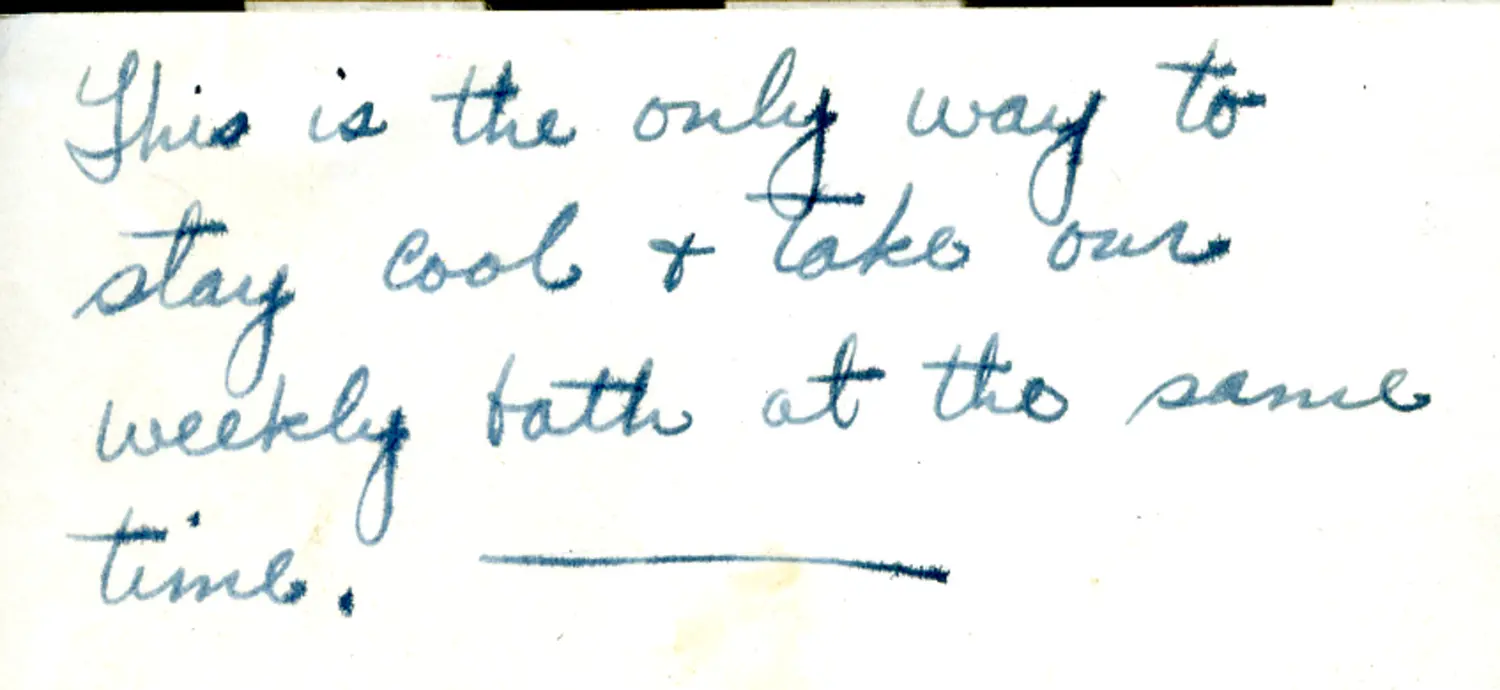 This is the only way to
stay cool & take our
weekly bath at the same
time.